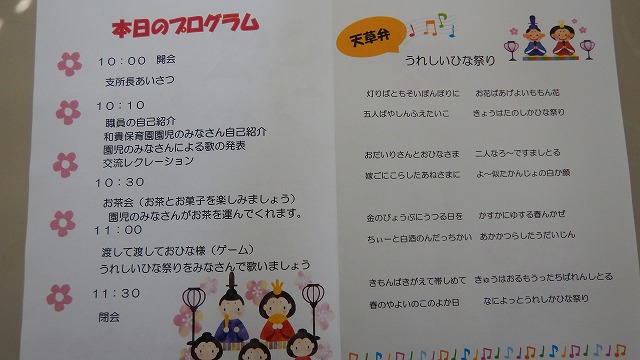 本日のプログラム
10:00 開会
支所長あいさつ
10:10
職員の自己紹介
和貴保育園園児のみなさん自己紹介
園児のみなさんによる歌の発表
交流レクレーション
10:30
お茶会（お茶とお菓子を楽しみましょう）
園児のみなさんがお茶を運んでくれます。
11:00
渡して渡しておひな様（ゲーム）
うれしいひな祭りをみなさんで歌いましょう
11:30
閉会
天草弁
うれしいひな祭り
灯りばともそいぼんぼりに お花ばあげよいももん花
五人ばやしんふえたいこ きょうはたのしかひな祭り
おだいりさんとおひなさま 二人なろ～ですましとる
嫁ごにこらしたあねさまに よ～似たかんじょの白か顔
金のびょうぶにうつる日を かすかにゆする春んかぜ
ちぃーと白酒のんだっちかい あかかつらしたうだいじん
きもんばきがえて帯しめて きゅうはおるもうったちばれんしとる
春のやよいのこのよか日 なによっとうれしかひな祭り